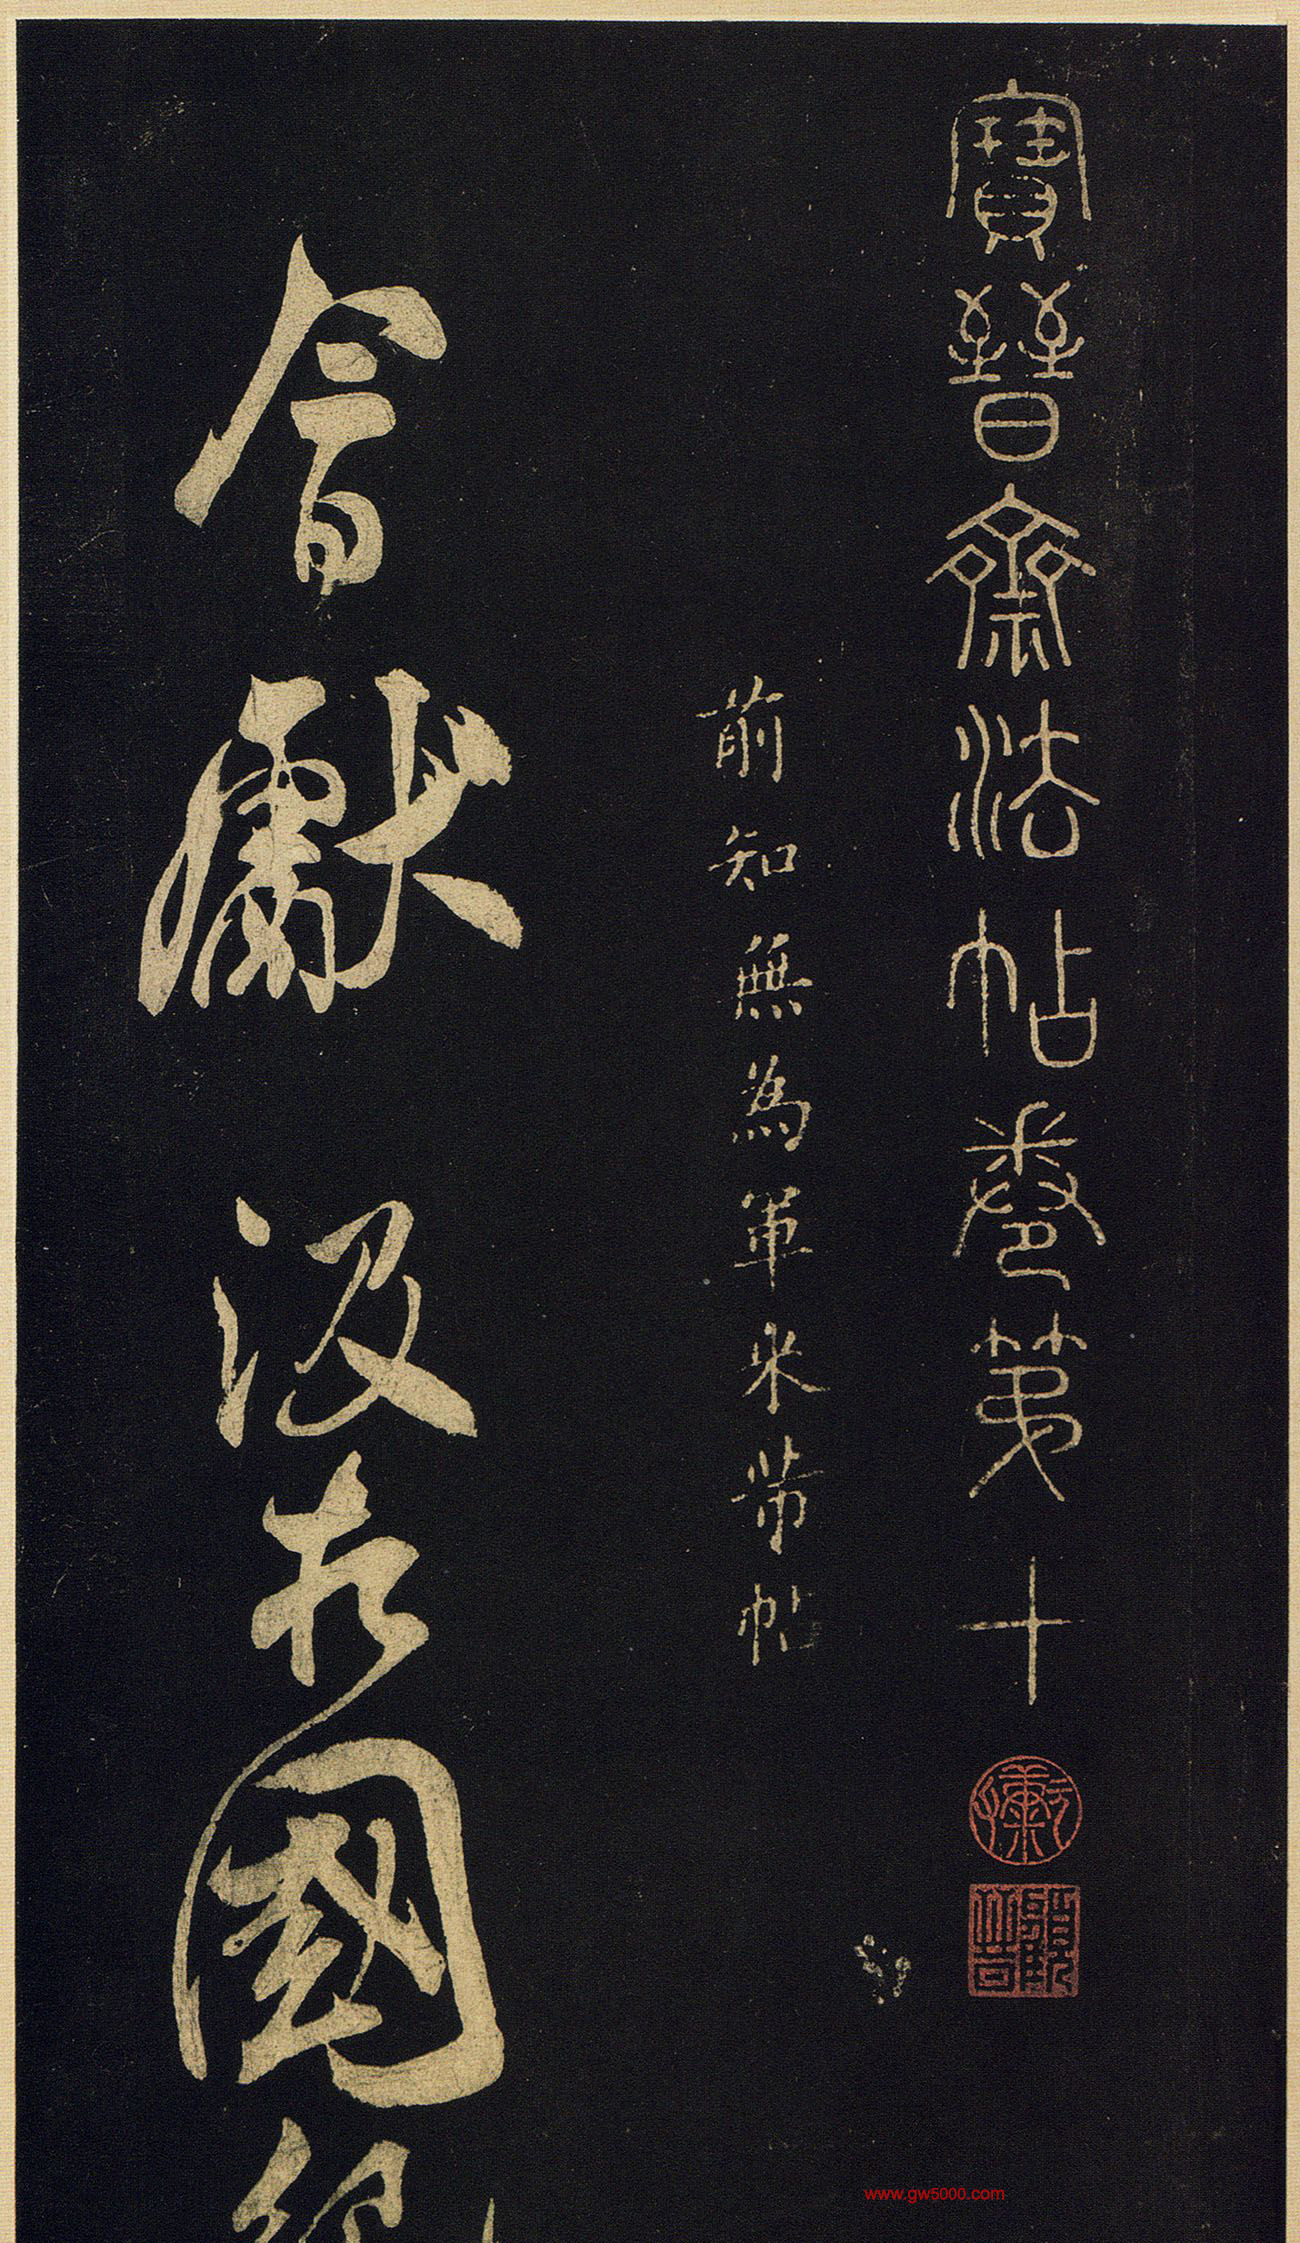 寶晉齋法帖卷第十
前知無為軍米芾帖
獻汲國
www.gw5000.com